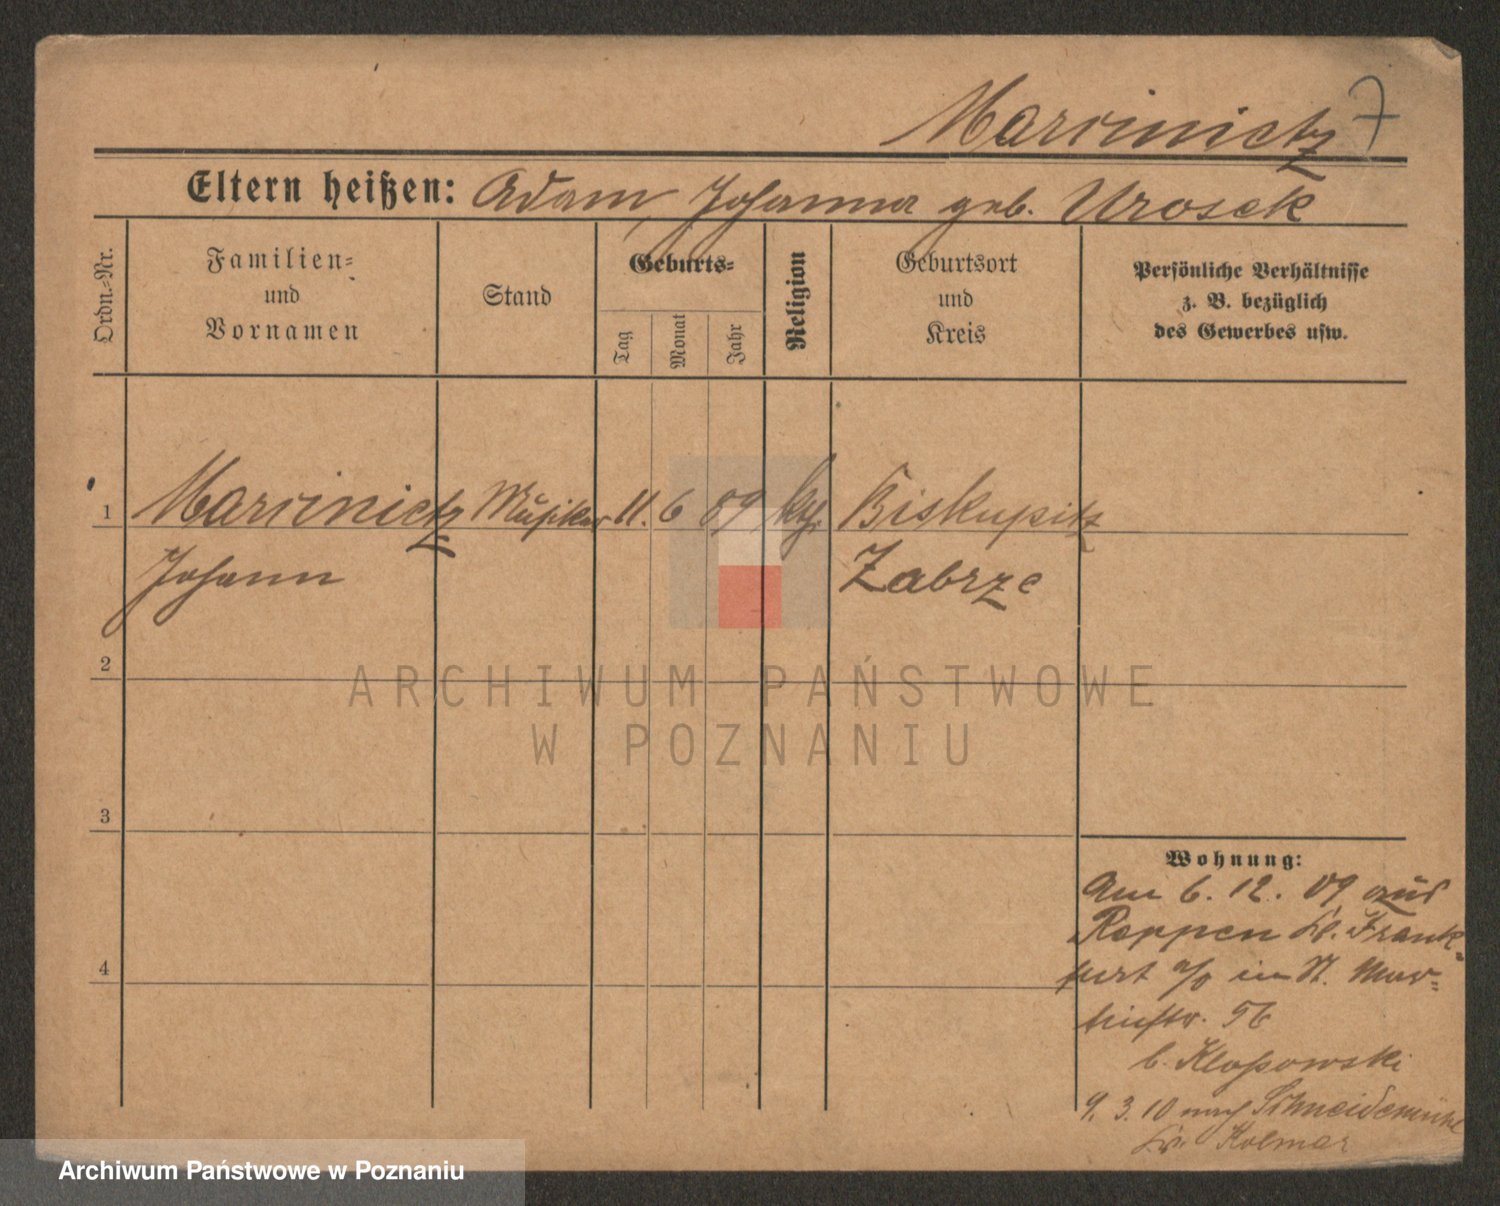 Marcinietz 7
Eltern heißen: Adam, Johanna geb. Urosek
Ordn.-Nr.
Familien-
und
Vornamen
Stand
Geburts-
Tag
Monat
Jahr
Religion
Geburtsort
und
Kreis
Persönliche Verhältnisse
z. B. bezüglich
des Gewerbes usw.
1 Musiker 11. 6 09 kth. Biskupitz
Johann Zabrze
2
3
4
Wohnung:
Am 6. 12. 09 aus
Reppen Kr. Frank-
furt a/O in St. Mar-
tinstr. 56
b. Kloßowski
9. 3. 10 nach Schneidemühl
Kr. Kolmar
ARCHIWUM PAŃSTWOWE
W POZNANIU
Archiwum Państwowe w Poznaniu